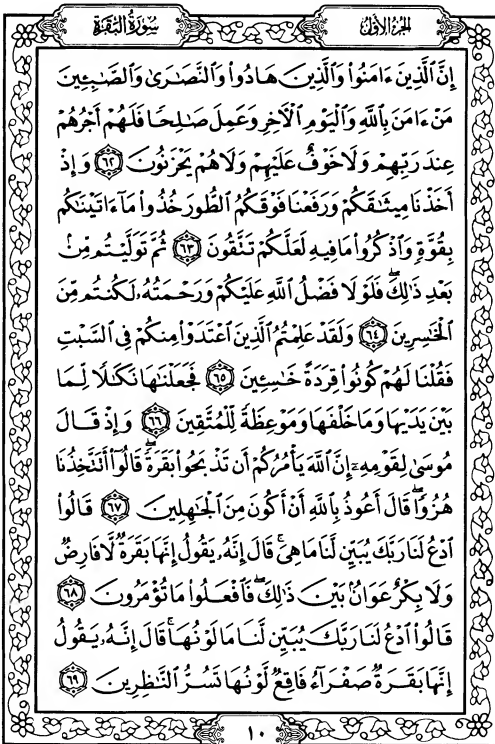 سُورَةُ البَقَرَةِ
الجزء الأول
إِنَّ ٱلَّذِينَ ءَامَنُوا۟ وَٱلَّذِينَ هَادُوا۟ وَٱلنَّصَٰرَىٰ وَٱلصَّٰبِـِٔينَ
مَنْ ءَامَنَ بِٱللَّهِ وَٱلْيَوْمِ ٱلْـَٔاخِرِ وَعَمِلَ صَٰلِحًا فَلَهُمْ أَجْرُهُمْ
عِندَ رَبِّهِمْ وَلَا خَوْفٌ عَلَيْهِمْ وَلَا هُمْ يَحْزَنُونَ ٦٢ وَإِذْ
أَخَذْنَا مِيثَٰقَكُمْ وَرَفَعْنَا فَوْقَكُمُ ٱلطُّورَ خُذُوا۟ مَآ ءَاتَيْنَٰكُم
بِقُوَّةٍ وَٱذْكُرُوا۟ مَا فِيهِ لَعَلَّكُمْ تَتَّقُونَ ٦٣ ثُمَّ تَوَلَّيْتُم مِّنۢ
بَعْدِ ذَٰلِكَ ۖ فَلَوْلَا فَضْلُ ٱللَّهِ عَلَيْكُمْ وَرَحْمَتُهُۥ لَكُنتُم مِّنَ
ٱلْخَٰسِرِينَ ٦٤ وَلَقَدْ عَلِمْتُمُ ٱلَّذِينَ ٱعْتَدَوْا۟ مِنكُمْ فِى ٱلسَّبْتِ
فَقُلْنَا لَهُمْ كُونُوا۟ قِرَدَةً خَٰسِـِٔينَ ٦٥ فَجَعَلْنَٰهَا نَكَٰلًا لِّمَا
بَيْنَ يَدَيْهَا وَمَا خَلْفَهَا وَمَوْعِظَةً لِّلْمُتَّقِينَ ٦٦ وَإِذْ قَالَ
مُوسَىٰ لِقَوْمِهِۦٓ إِنَّ ٱللَّهَ يَأْمُرُكُمْ أَن تَذْبَحُوا۟ بَقَرَةً ۖ قَالُوٓا۟ أَتَتَّخِذُنَا
هُزُوًا ۖ قَالَ أَعُوذُ بِٱللَّهِ أَنْ أَكُونَ مِنَ ٱلْجَٰهِلِينَ ٦٧ قَالُوا۟
ٱدْعُ لَنَا رَبَّكَ يُبَيِّن لَّنَا مَا هِىَ ۚ قَالَ إِنَّهُۥ يَقُولُ إِنَّهَا بَقَرَةٌ لَّا فَارِضٌ
وَلَا بِكْرٌ عَوَانٌۢ بَيْنَ ذَٰلِكَ ۖ فَٱفْعَلُوا۟ مَا تُؤْمَرُونَ ٦٨
قَالُوا۟ ٱدْعُ لَنَا رَبَّكَ يُبَيِّن لَّنَا مَا لَوْنُهَا ۚ قَالَ إِنَّهُۥ يَقُولُ
إِنَّهَا بَقَرَةٌ صَفْرَآءُ فَاقِعٌ لَّوْنُهَا تَسُرُّ ٱلنَّٰظِرِينَ ٦٩
١٠